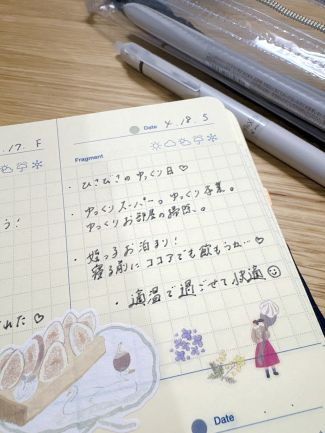 .17. F
Date 4. 18. S
Fragment
・ひさびさのゆっくり日♡
・ゆっくりスーパーっ ゆっくり 。
ゆっくりお部屋の掃除、。
う!
・姪っ子お泊まり!
寝る前にココアでも飲もうね…♡
・適温で過ごせて快適☺
れた♡
Date